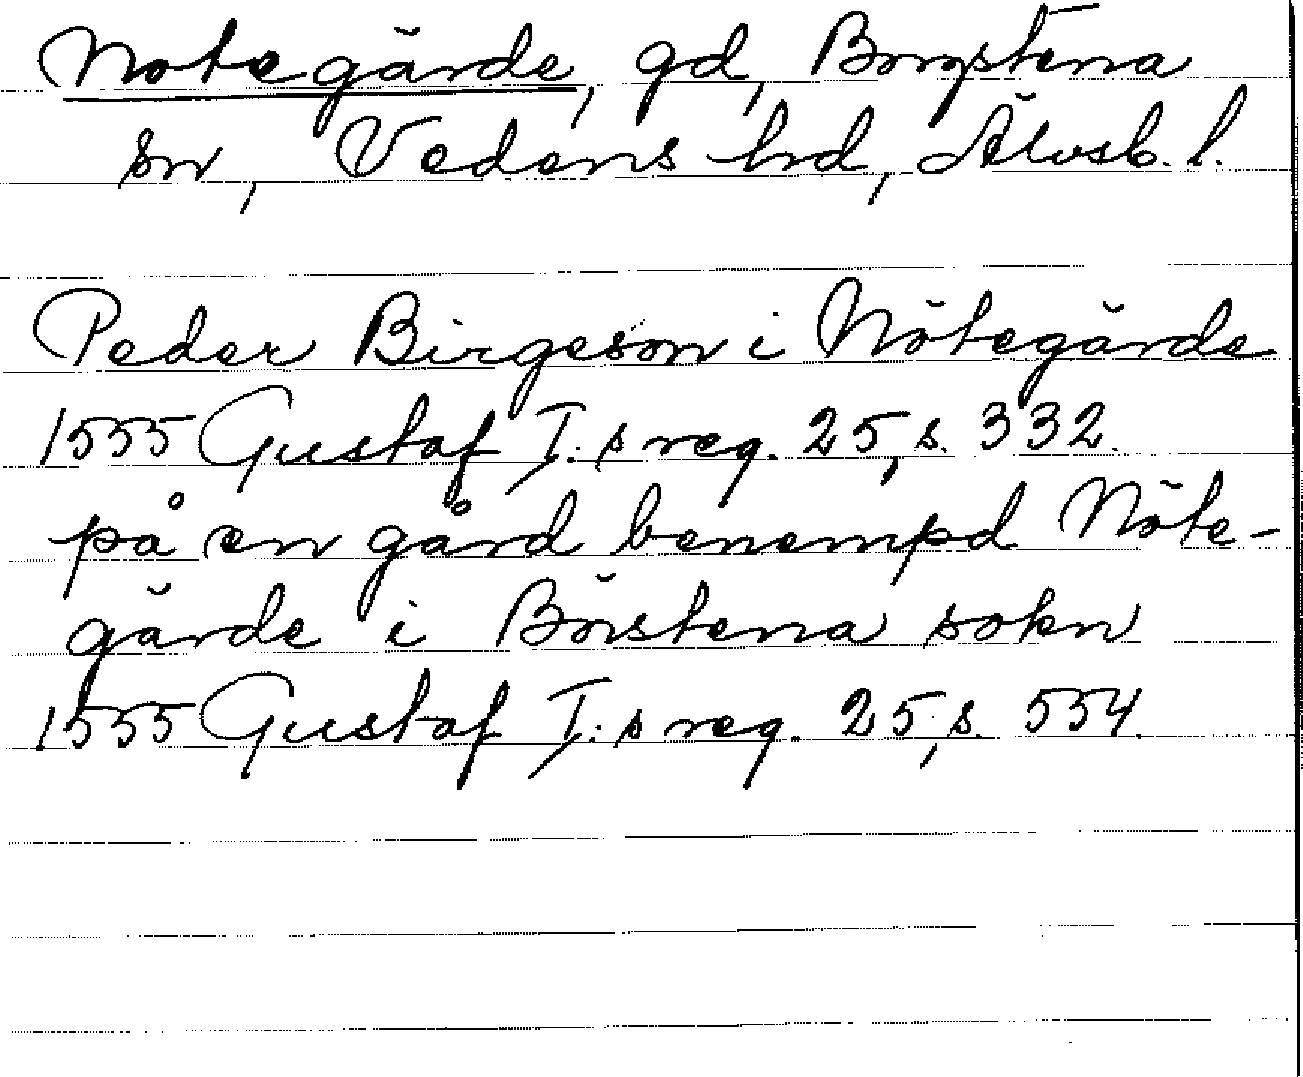 Notegärde, gd, Borgstena
sn, Vedens hd, Älvsb. l.
Peder Birgeson i Nötegärde
1555 Gustaf I:s reg. 25, s. 332.
på en gård benempd Nöte-
gärde i Börstena sokn
1555 Gustaf I:s reg. 25, s. 554.